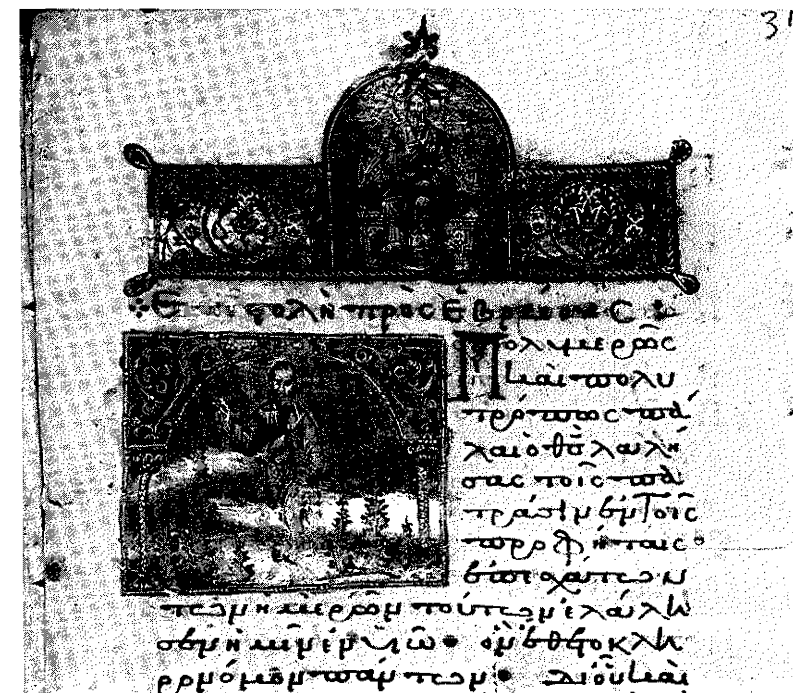 Ἐπιστολὴ πρὸς Ἑβραίους
Πολυμερῶς
καὶ πολυ
τρόπως πά
λαι ὁ θ̅ς̅ λαλή
σας τοῖς πα
τράσιν ἐν τοῖς
προφήταις·
ἐπ' ἐσχάτων
τῶν ἡμερῶν τούτων ἐλάλη
σεν ἡμῖν ἐν υἱῶ· ὃν ἔθηκε κλη
ρονόμον πάντων· δι' οὗ καὶ